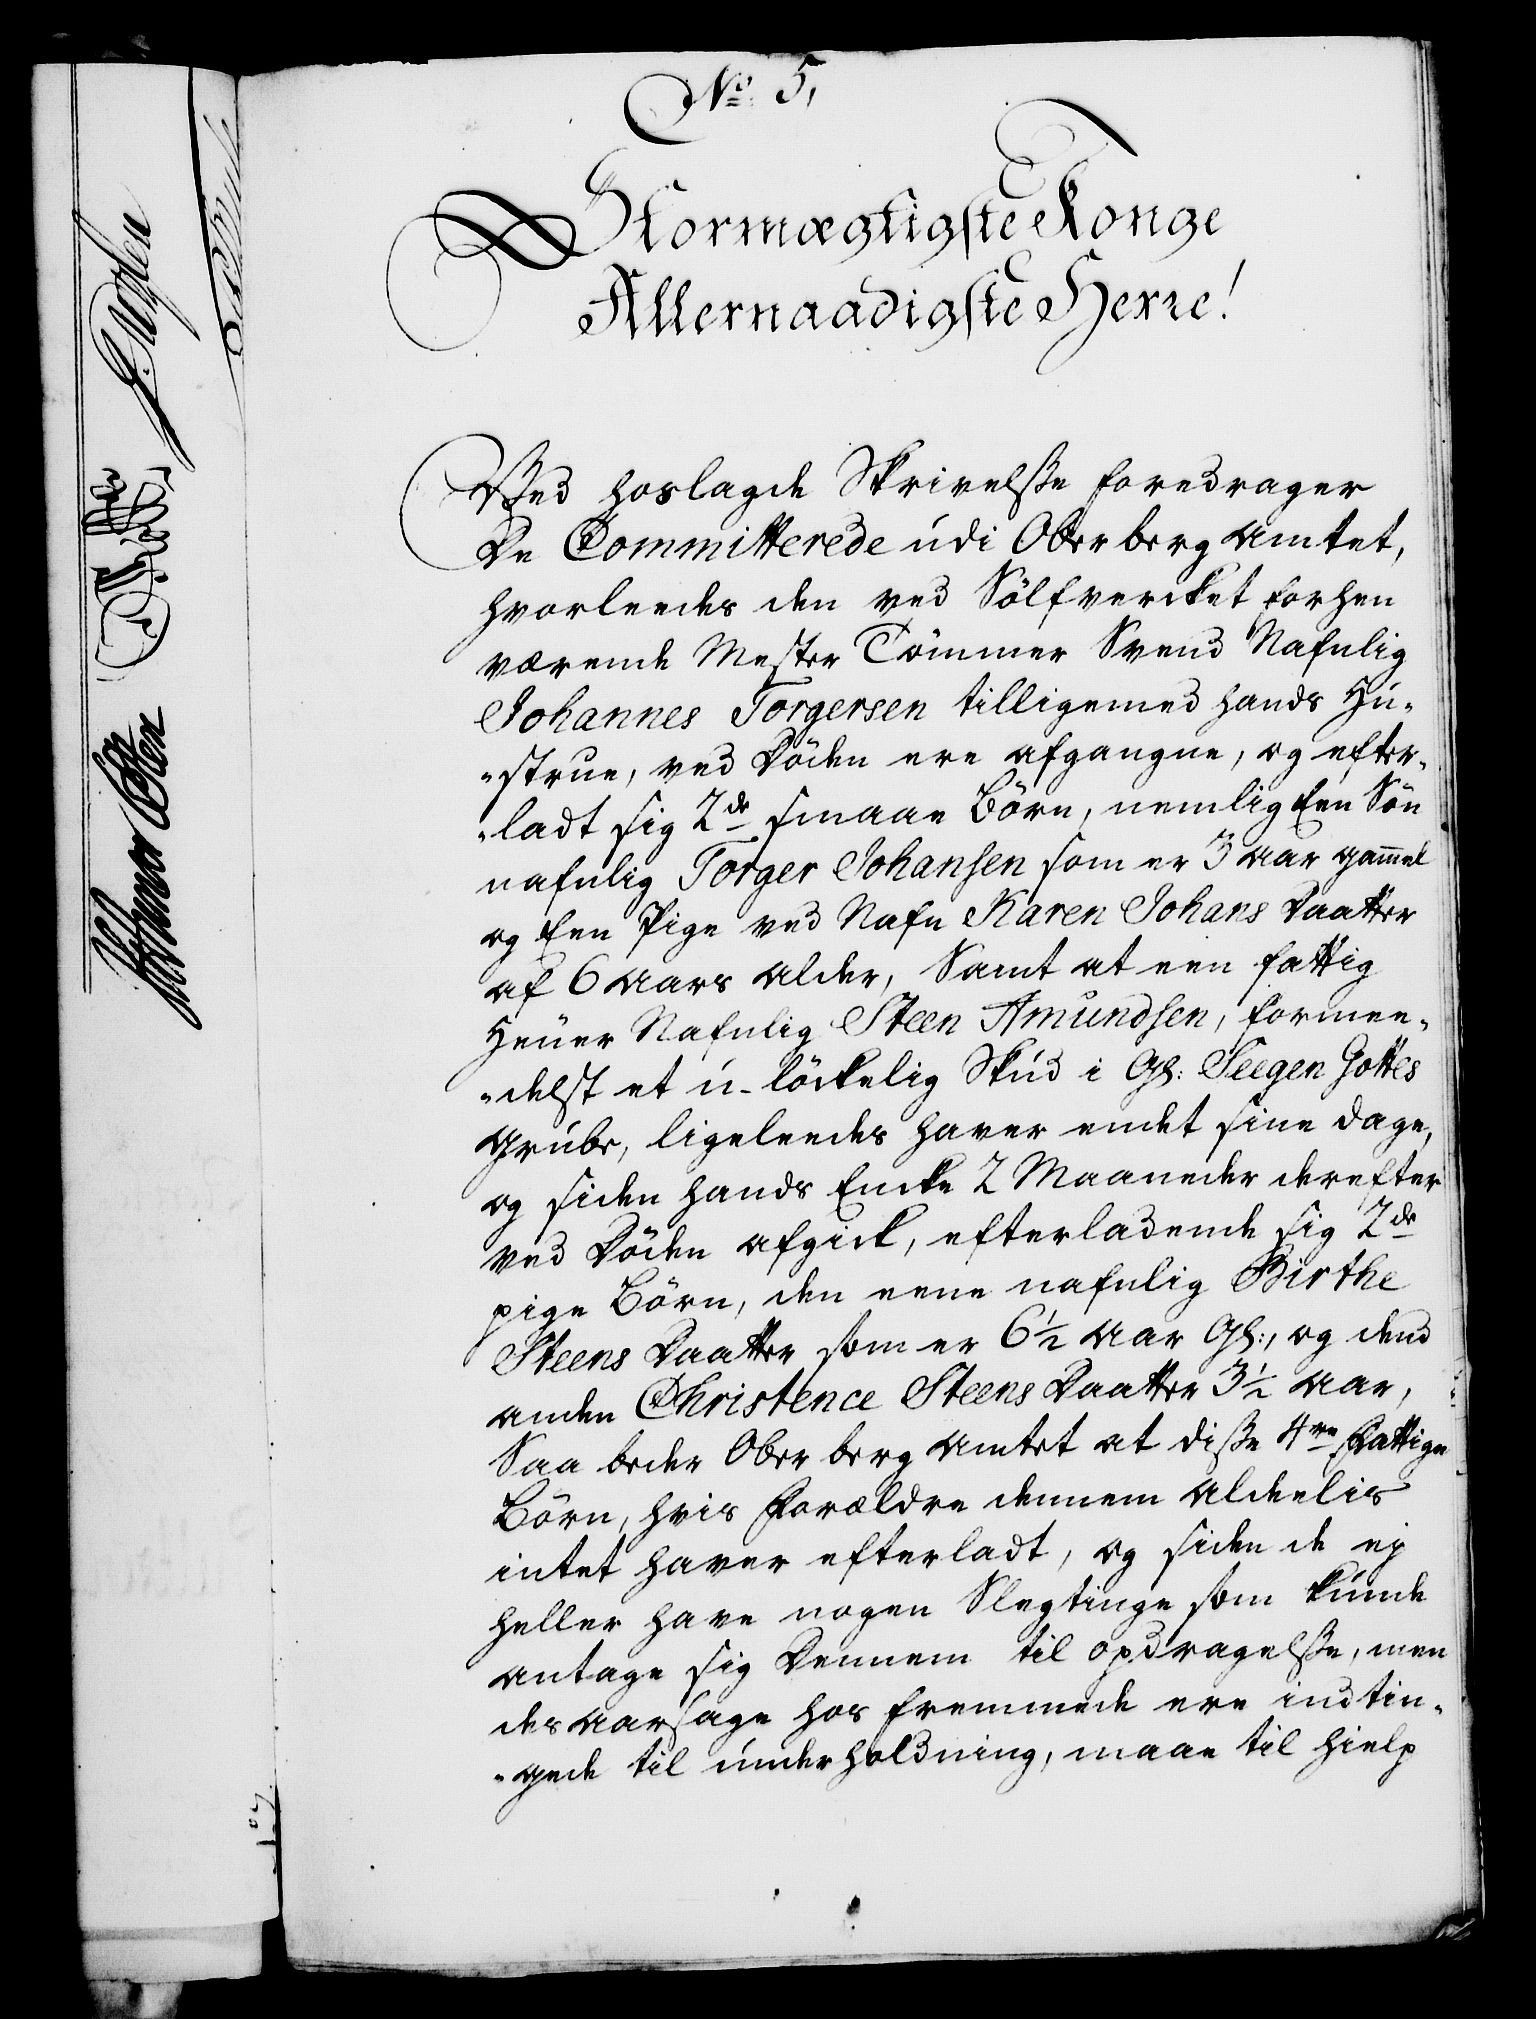 No 5,
Stormægtigste Konge
Allernaadigste Herre!
Ved hoslagde Skrivelsse foredrager
De Committerede udi Oberberg Amtet,
hvorleedes den ved Sölfvercket forhen
værende Mester Tömmer Svend Nafnlig
Johannes Torgersen tilligemed hands Hu-
-strue, ved Döden ere afgangne, og efter-
-ladt sig 2de smaae Börn, nemlig Een Sön
nafnlig Torger Johansen som er 3 Aar gammel
og Een Pige ved Nafn Karen Johans Daatter
af 6 Aars Alder, Samt at een fattig
Heüer Nafnlig Steen Amundsen, formee-
-delst et u-löckelig Skud i Gl: Seegen Gottes
Grube, ligeleedes haver endet sine dage,
og siden hands Encke 2 Maaneder derefter
ved Döden afgick, efterladende sig 2de
pige Börn, den eene nafnlig Birthe
Steens Daatter som er 6½ Aar Gl:, og dend
anden Christence Steens Daatter 3½ Aar,
Saa beder Ober berg Amtet at disse 4re Fattige
Börn, hvis Forældre dennem Aldeelis
intet haver efterladt, og siden de ej
heller have nogen Slegtinge som kunde
antage sig Dennem til opdragelsse, men
des Aarsage hos fremmede ere indtin-
-gede til underholdning, maae til hielp